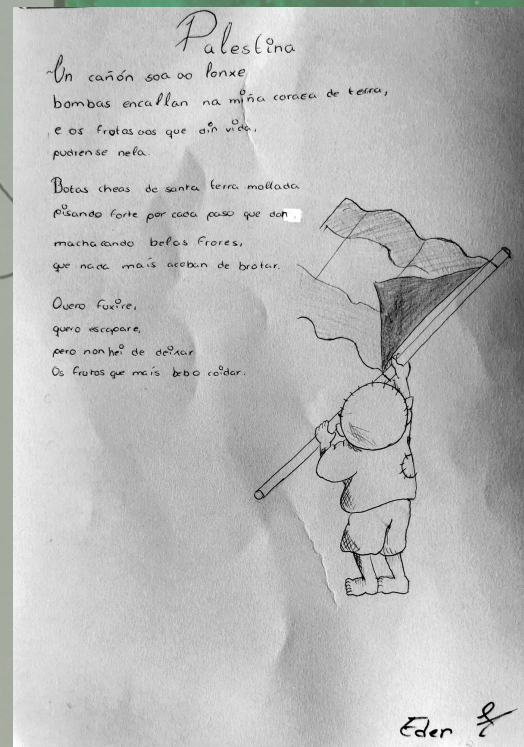 Palestina
Un cañón soa ao lonxe
bombas encallan na miña coraza de terra,
e os frotos aos que din vida,
pudrense nela.
Botas cheas de santa terra mollada
pisando forte por cada paso que don
machacando belas frores,
que nada mais acaban de brotar.
Quero fuxire,
quero escapare,
pero non hei de deixar
Os frutos que mais bebo coidar.
Eder